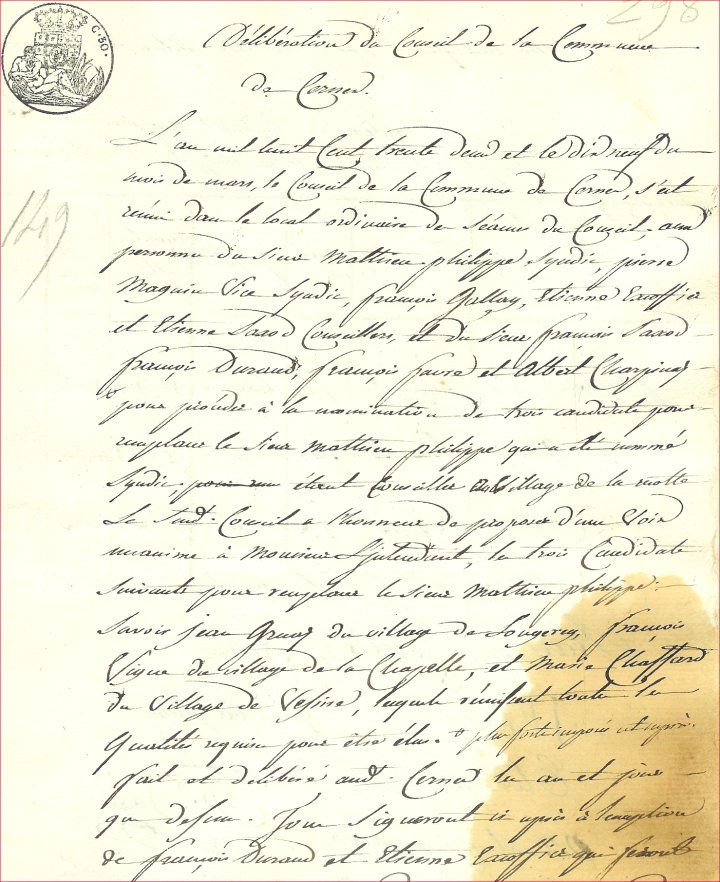 298
C. 50.
Délibération du Conseil de la Commune
de Cernex.
149
L'an mil huit Cent trente deux et le dix neuf du
mois de mars, le Conseil de la Commune de Cernex, s'est
réuni dans le local ordinaire des Séances du Conseil, aux
personnes du Sieur Mathieu philippe Syndic, pierre
Magnin Vice Syndic, françois Gallay, Etienne Excoffier
et Etienne Saxod Conseillers, et du Sieur françois Saxod
françois Durand, françois favre et Albert Charpinaz
pour procéder à la nomination de trois candidats pour
remplacer le Sieur Mathieu philippe qui a été nommé
Syndic, étant Conseiller du Village de la motte
Le Sud. Conseil a l'honneur de proposer d'une Voix
unanime à Monsieur L'jntendant, les trois Candidats
suivants pour remplacer le Sieur Mathieu philippe:
Savoir jean du village de françois
Vigne du village de la Chapelle, et Marie Chaffard
du Village de Vesine, lesquels réunissent toutes les
Qualités requises pour être élus. plus forts imposés
fait et délibéré aud. Cernex les an et jour
que dessus. Tous Signeront ci après à l'exception
de françois Durand et Etienne Excoffier qui